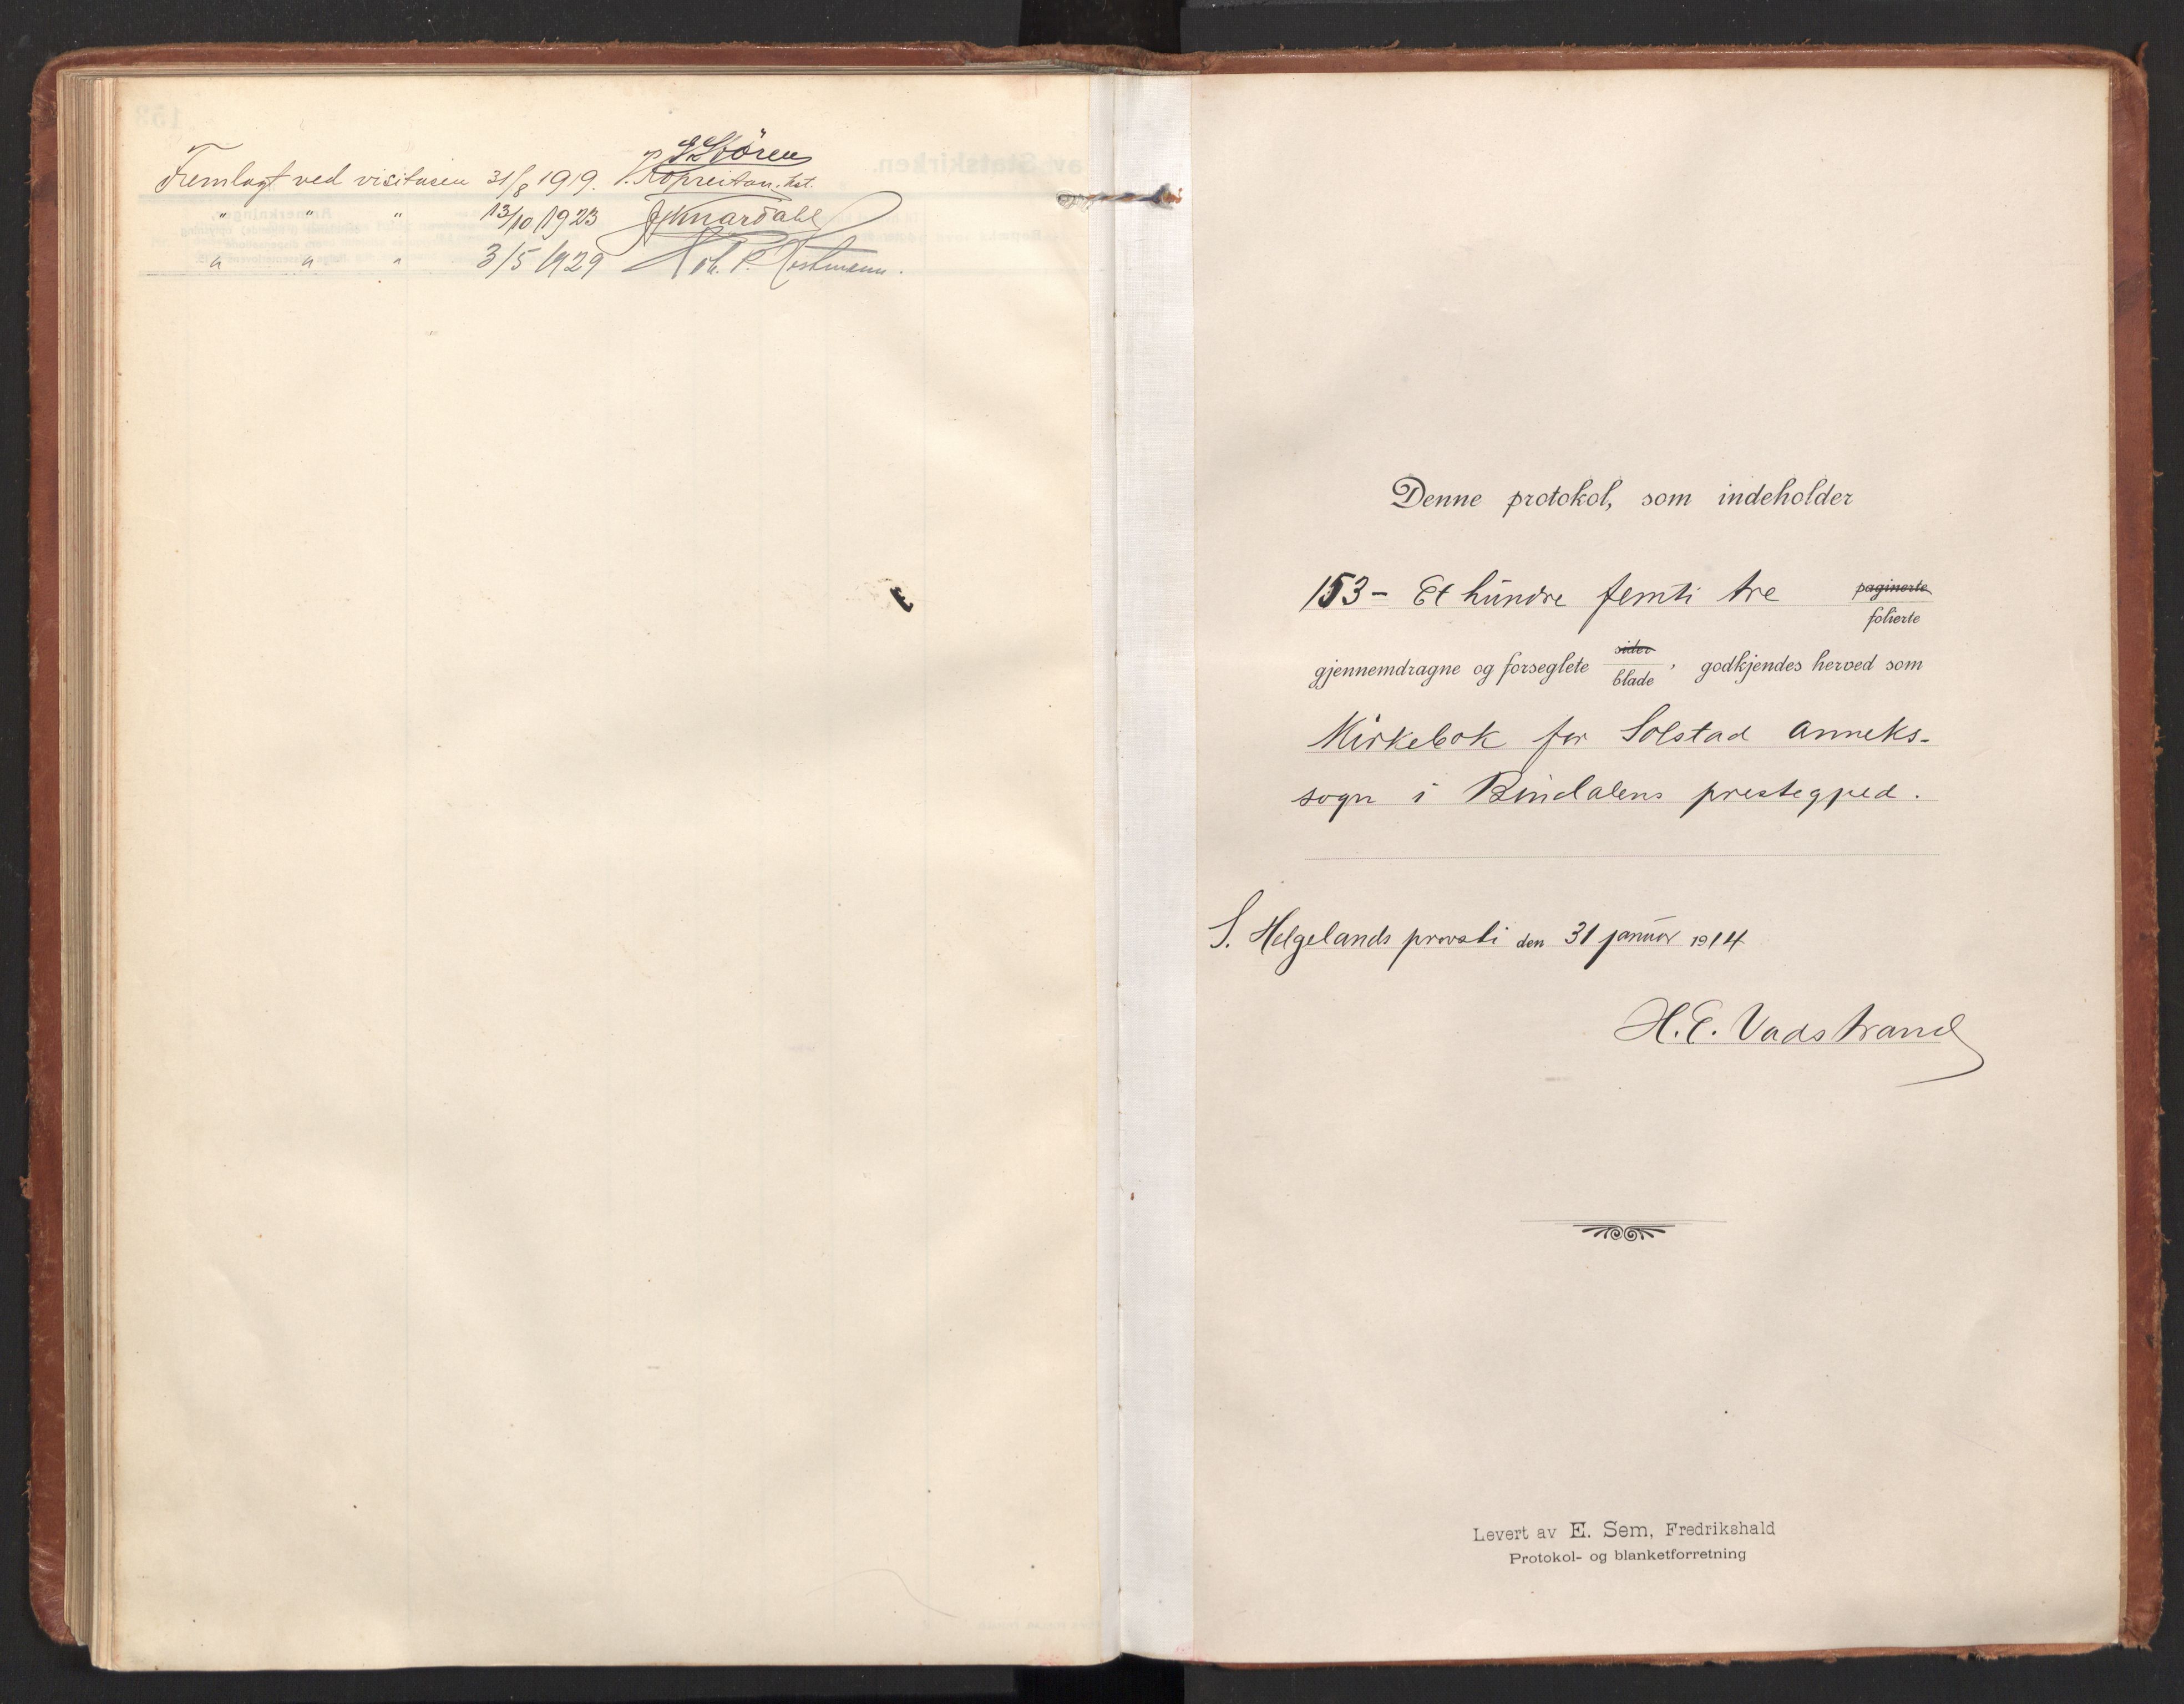 G. Støren
Fremlagt ved visitasen 31/8 1919. P. Kopreitan. kst.
" " " 13/10 1923 J. Knardahl
" " " 3/5 1929 Joh. P. Kostmann.
Denne protokol, som indeholder
153 - Et hundre femti tre paginerte
folierte
gjennemdragne og forseglete sider
blade, godkjendes herved som
Kirkebok for Solstad anneks-
sogn i Bindalens prestegjeld.
S. Helgelands provsti den 31 januar 1914
H. E. Vadstrand
Levert av E. Sem, Fredrikshald
Protokol- og blanketforretning